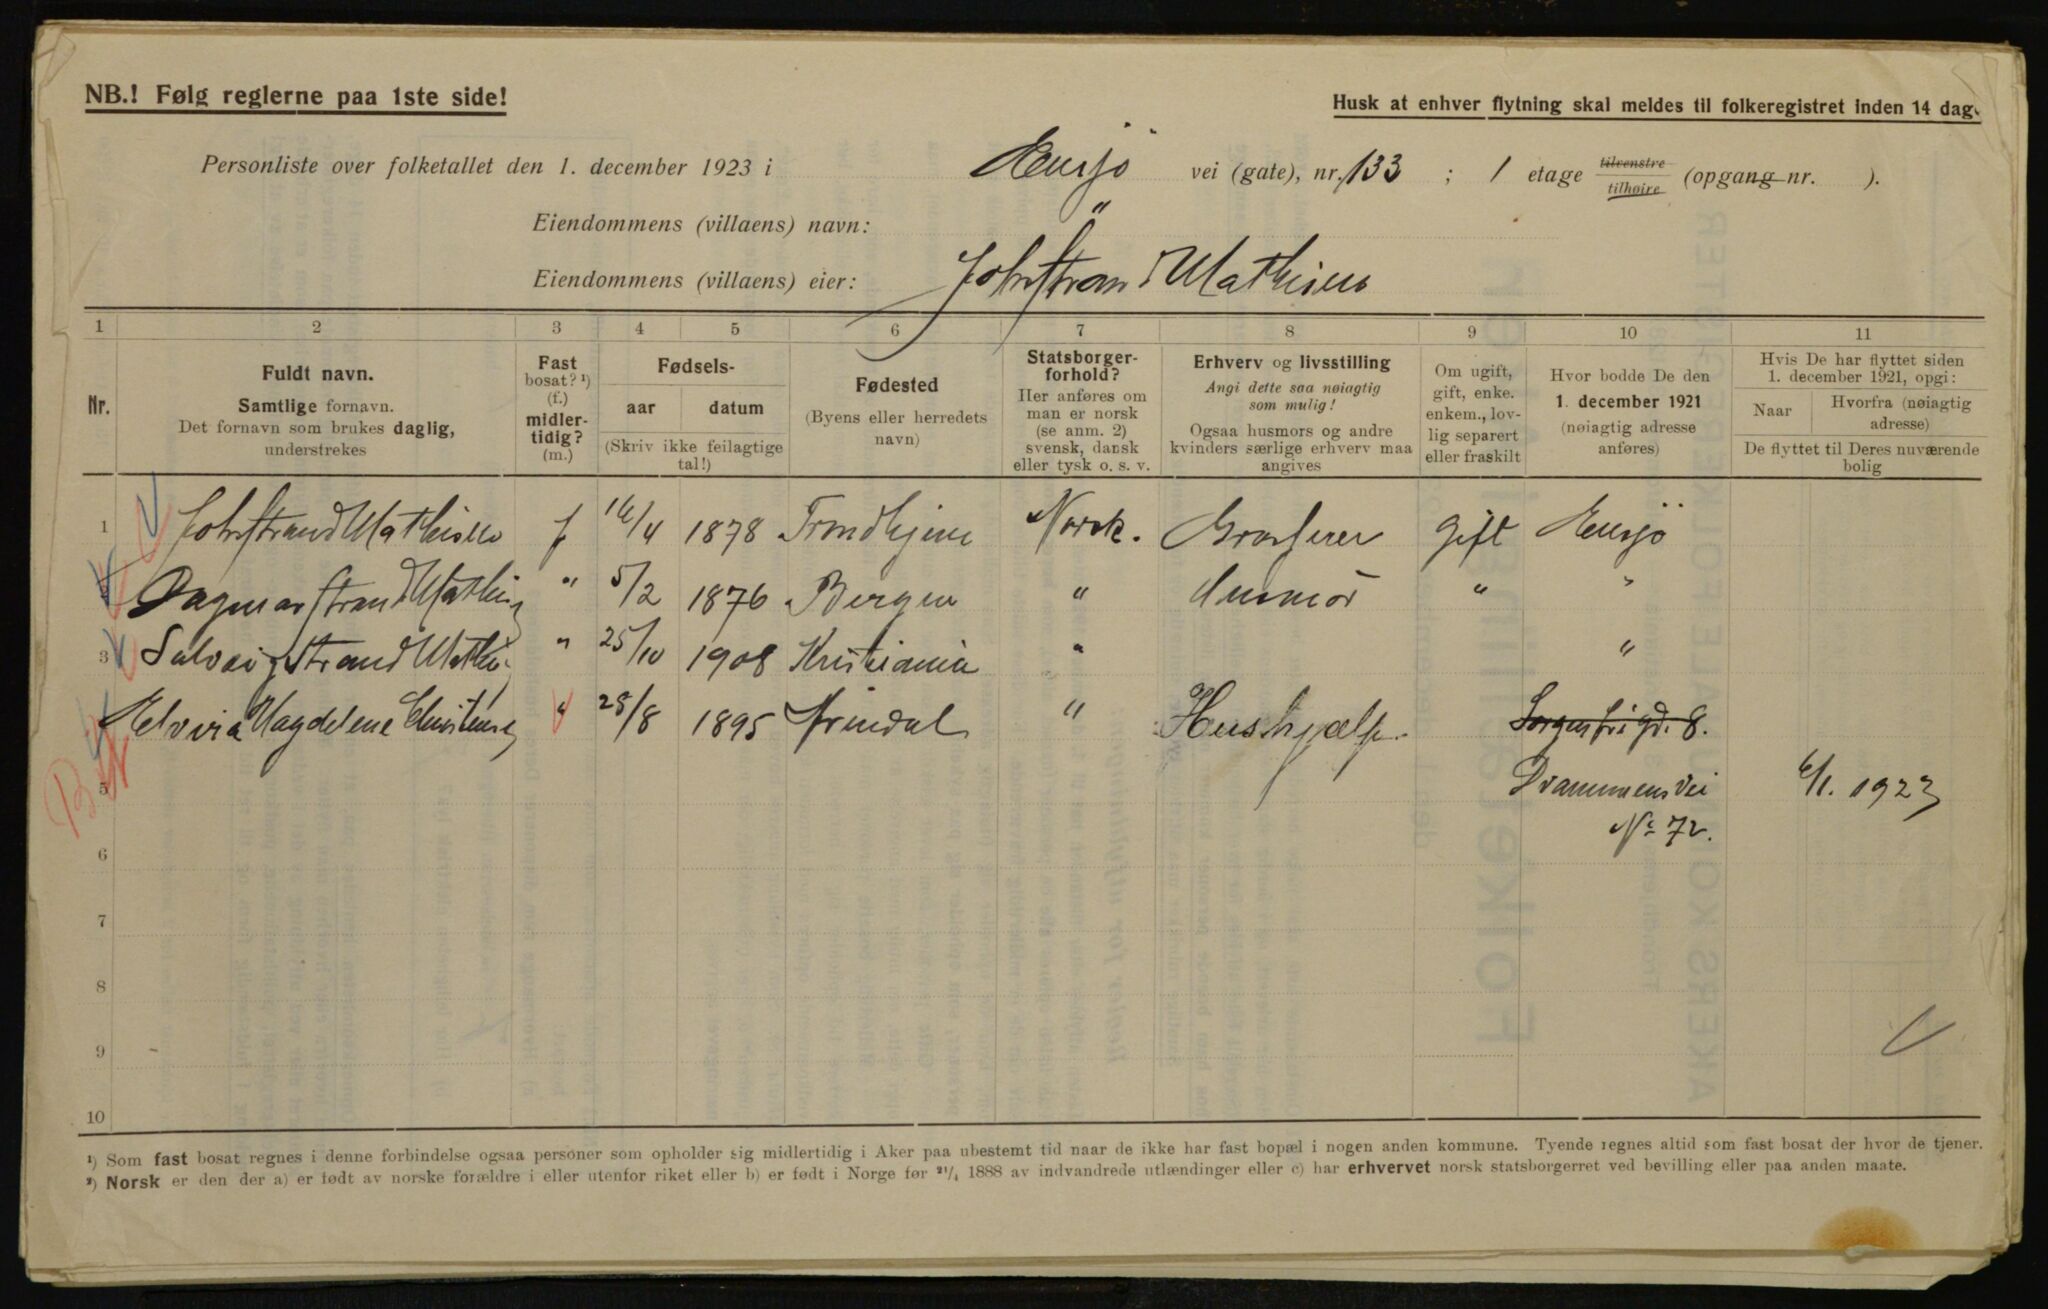 NB.! Følg reglerne paa 1ste side!
Husk at enhver flytning skal meldes til folkeregistret inden 14 dage
Personliste over folketallet den 1. december 1923 i Ensjö vei (gate), nr. 133 ; 1 etage tilvenstre tilhøire (opgang nr. ).
Eiendommens (villaens) navn: "
Eiendommens (villaens) eier: Johs Strand Mathisen
1 2 3 4 5 6 7 8 9 10 11
Nr.
Fuldt navn.
Samtlige fornavn.
Det fornavn som brukes daglig,
understrekes
Fast
bosat? ¹)
(f.)
midler-
tidig?
(m.)
Fødsels-
aar datum
(Skriv ikke feilagtige
tal!)
Fødested
(Byens eller herredets
navn)
Statsborger-
forhold?
Her anføres om
man er norsk
(se anm. 2)
svensk, dansk
eller tysk o. s. v.
Erhverv og livsstilling
Angi dette saa nøiagtig
som mulig!
Ogsaa husmors og andre
kvinders særlige erhverv maa
angives
Om ugift,
gift, enke.
enkem., lov-
lig separert
eller fraskilt
Hvor bodde De den
1. december 1921
(nøiagtig adresse
anføres)
Hvis De har flyttet siden
1. december 1921, opgi:
Naar Hvorfra (nøiagtig
adresse)
De flyttet til Deres nuværende
bolig
1 Johs Strand Mathisen f 16/4 1878 Trondhjem Norsk. Grosserer gift Ensjö
Dagmar Strand Mathis " 5/2 1876 Bergen " Husmor " "
3 Solveig Strand Mathis " 25/10 1908 Kristiania " "
Elvira Magdelene Christensen " 28/8 1895 Arendal " Hushjælp. Sorgenfrigd. 8.
5 Drammensvei 6/1. 1923
No 72.
6
7
8
9
10
¹) Som fast bosat regnes i denne forbindelse ogsaa personer som opholder sig midlertidig i Aker paa ubestemt tid naar de ikke har fast bopæl i nogen anden kommune. Tyende regnes altid som fast bosat der hvor de tjener.
²) Norsk er den der a) er født av norske forældre i eller utenfor riket eller b) er født i Norge før ²¹/₄ 1888 av indvandrede utlændinger eller c) har erhvervet norsk statsborgerret ved bevilling eller paa anden maate.